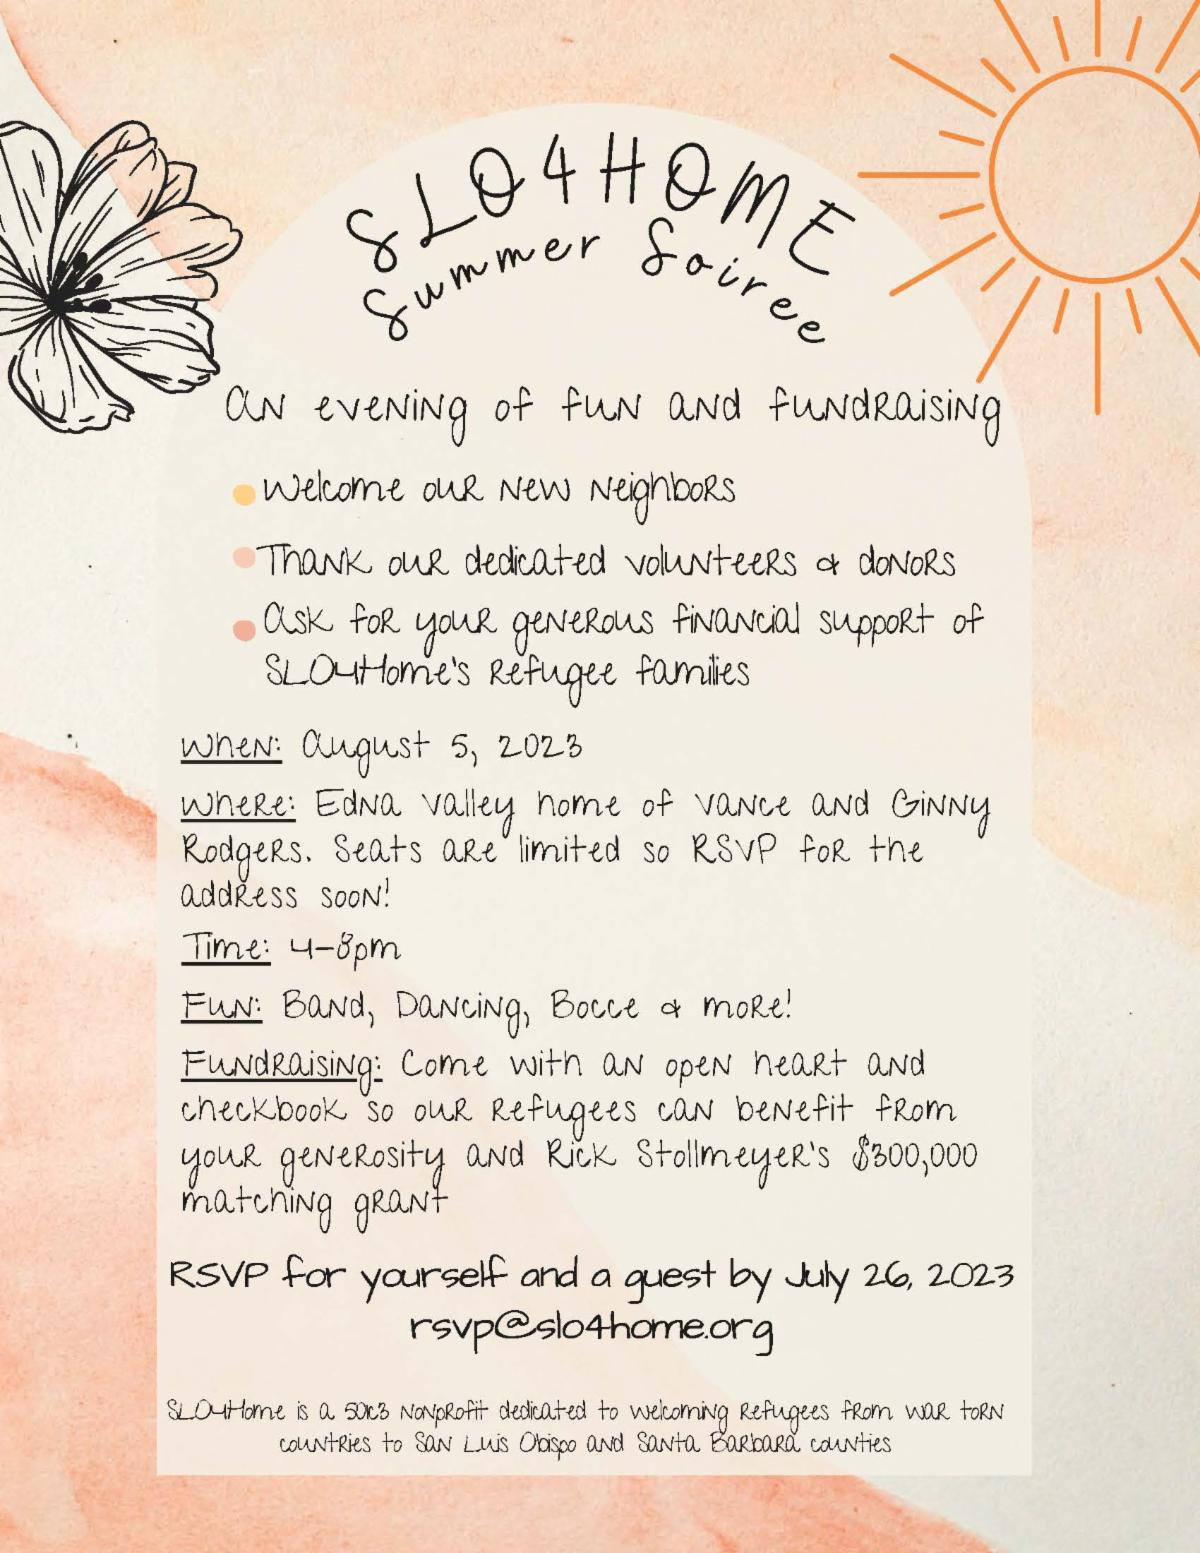 SLO4HOME
Summer Soiree
An evening of fun and fundraising
Welcome our new neighbors
Thank our dedicated volunteers & donors
Ask for your generous financial support of
SLO4Home's refugee families
When: August 5, 2023
Where: Edna Valley home of Vance and Ginny
Rodgers. Seats are limited so RSVP for the
address soon!
Time: 4-8pm
Fun: Band, Dancing, Bocce & more!
Fundraising: Come with an open heart and
checkbook so our refugees can benefit from
your generosity and Rick Stollmeyer's $300,000
matching grant
RSVP for yourself and a guest by July 26, 2023
rsvp@slo4home.org
SLO4Home is a 501c3 nonprofit dedicated to welcoming refugees from war torn
countries to San Luis Obispo and Santa Barbara counties